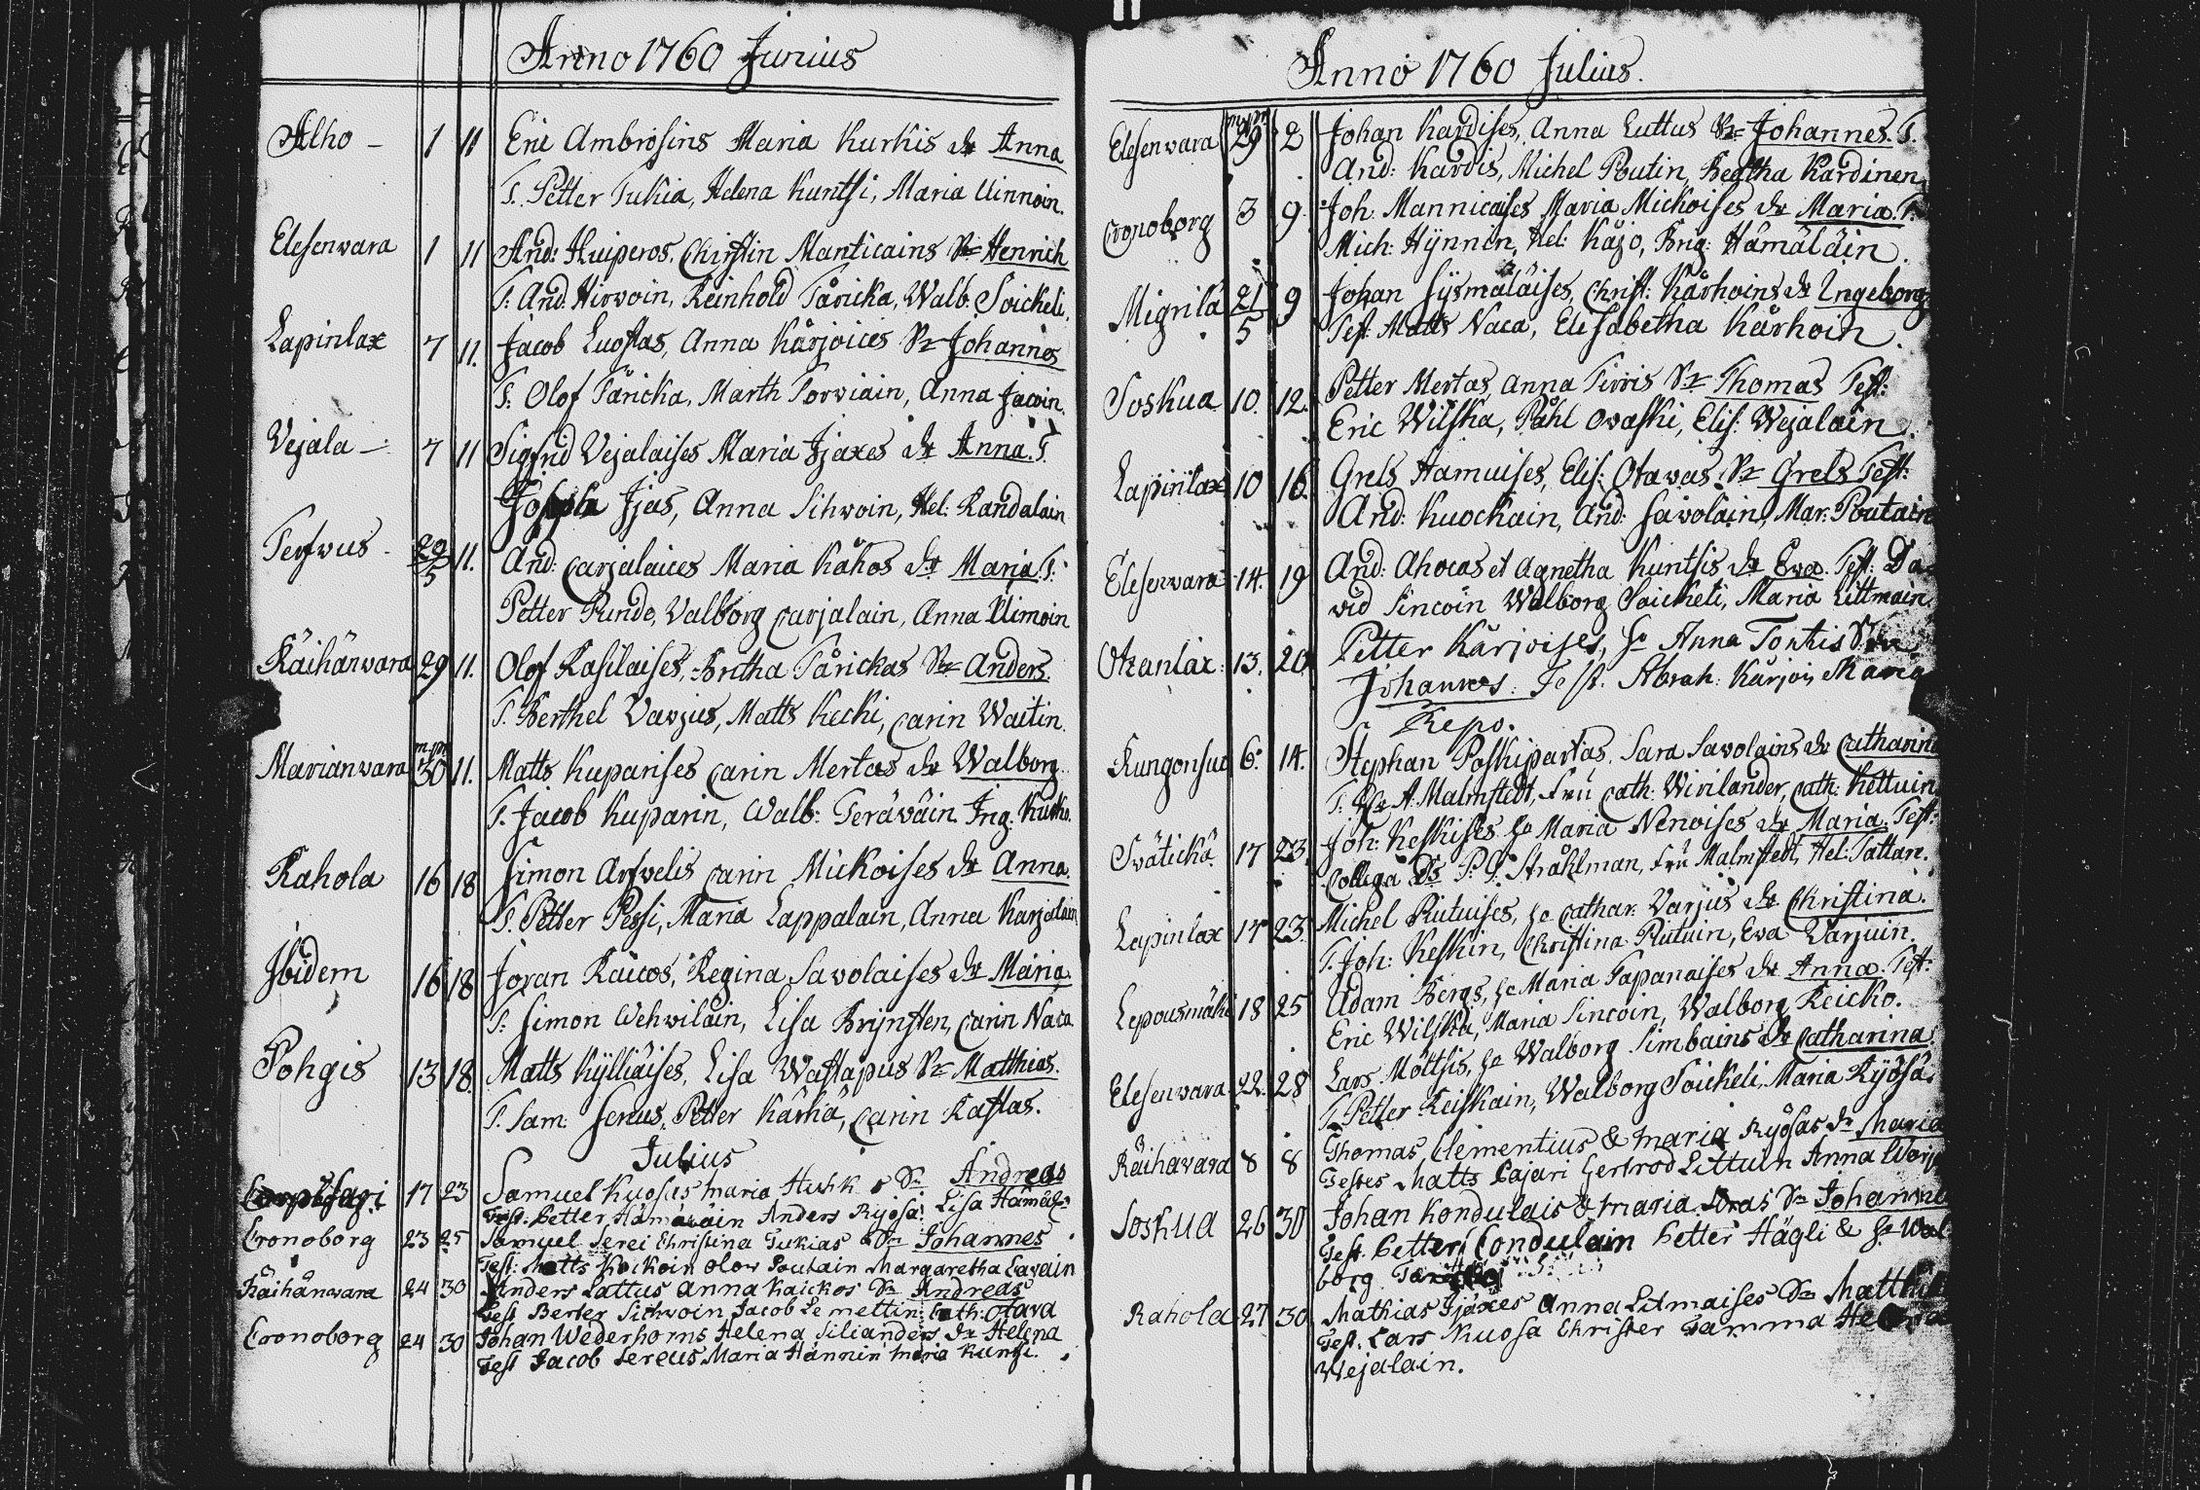 Anno 1760 Junius
Alho - 1 11 Eric Ambrosius Maria Kurkis dr Anna
T. Petter Tukia, Helena Kuntsi, Maria Uinnoin.
Elesenwara 1 11 And: Huiperos, Christin Manticains Sr Henrich
T: And. Hirwoin, Reinhold Tåricka, Walb. Soickeli.
Lapinlax 7 11. Jacob Luostas, Anna Kärjoices Sr Johannes
T: Olof Täricka, Marth Torwiain, Anna Jacoin.
Vejala -: 7 11 Sigfrid Vejalaises Maria Ijaxes dr Anna. T.
Joseph Ijas, Anna Sihwoin, Hel: Randalain
Terfwus - 29/5 11. And: Carjalaices Maria Kåkos dr Maria. T:
Petter Pundo, Valborg Carjalain, Anna Uimoin
Räihänwara 29 11. Olof Rasilaises, Britha Tårickas Sr Anders.
T. Berthel Varjus, Matts Kecki, Carin Waitin.
Marianwara 30 11. Matts Kuparises Carin Mertas dr Walborg.
T. Jacob Kuparin, Walb: Teräwäin Ing: Kurko.
Rahola 16 18 Simon Arfwelis Carin Mickoises dr Anna.
T. Petter Pessi, Maria Lappalain, Anna Karjalain
Ibidem 16 18 Joran Raucos, Regina Savolaises dr Maria.
T: Simon Wehwiläin, Lisa Brynsten, Carin Naca
Pohgis 13 18. Matts Kylliäises, Lisa Wastapus Sr Matthias.
T. Sam: Serus, Petter Kärhä, Carin Rastas.
Julius
17 23 Samuel Kuosas Maria Sr Andreas
Test: Petter Hämäläin Anders Ryösä: Lisa
Cronoborg 23 25 Samuel Serei Christina Tukias Sr Johannes
Test: Matts Kockoin Olov Poutain Margaretha Lavain
Räihänwara 24 30 Anders Lattus Anna Kaickos Sr Andreas
Test Berter Sichwoin Jacob Lemettin: Cath: Otava
Cronoborg 24 30 Johan Wederhorns Helena Siliander dr Helena
Test Jacob Sereus Maria Hännin Maria Kuntsi.
Anno 1760 Julius.
Elesenwara 29 2 Johan Kardises, Anna Luttus Sr Johannes. T.
And: Kardis, Michel Poutin, Bertha Kardinen
Cronoborg 3 9. Joh: Mannicaises Maria Mickoises dr Maria. T.
Mich: Hynnin, Hel: Käjo, Brig: Hämäläin.
Migrilä 21/5 9 Johan Sysmäläises, Christ: Kärhoins dr Ingeborg
Test: Matts Naca, Elisabetha Kärhoin.
Soskua 10. 12. Petter Mertas, Anna Tirris Sr Thomas Test:
Eric Wilska, Påhl Ovaski, Elis: Wejalain.
Lapinlax 10 16. Grels Hamuises, Elis: Otawas Sr Grels Test:
And: Kuockain, And: Savolain, Mar: Poutain
Elesenwara 14. 19 And: Ahocas et Agnetha Kuntsis dr Ewa. Test: Da-
vid Sincoin Walborg Soickeli, Maria Littmain
Otzanlax: 13. 20. Petter Kärjoises, h Anna Tontis
Johannes: Test. Abrah: Kärjoi, Maria
Repo.
Kungonsuo 6. 14. Stephan Poskiparkas, Sara Savolains dr Catharina
T: A. Malmstedt, Fru Cath: Wirilander, Cath: Kettuin
Swäticka 17 23. Joh: Keskises, h Maria Nenoises dr Maria. Test:
Collega P. G. Stråhlman, Fru Malmstedt, Hel: Tattar.
Lapinlax 17 23. Michel Riutuises, h Cathar: Varjus dr Christina.
T. Joh: Keskin, Christina Riutuin, Ewa Varjuin.
Lepousmäki 18 25 Adam Bergs, h Maria Tapanaises dr Anna. Test:
Eric Wilska, Maria Sincoin, Walborg Reicko.
Elesenwara 22. 28 Lars Möttsis, h Walborg Simbains dr Catharina.
T. Petter Reiskain, Walborg Soickeli, Maria Ryösä.
Räihävara 8 8 Thomas Clementius & Maria Ryösas dr Maria
Testes Matts Cajari Gertrod Littuin Anna
Soskua 26 30 Johan Kondulais & Maria Sr Johannes
Test: Petter Condulain Petter Hägli & h Wal-
borg
Rahola 27 30 Mathias Ijäxes Anna Litmaises Sr Matthias
Test: Lars Kuosa Christer Tamma
Wejalain.